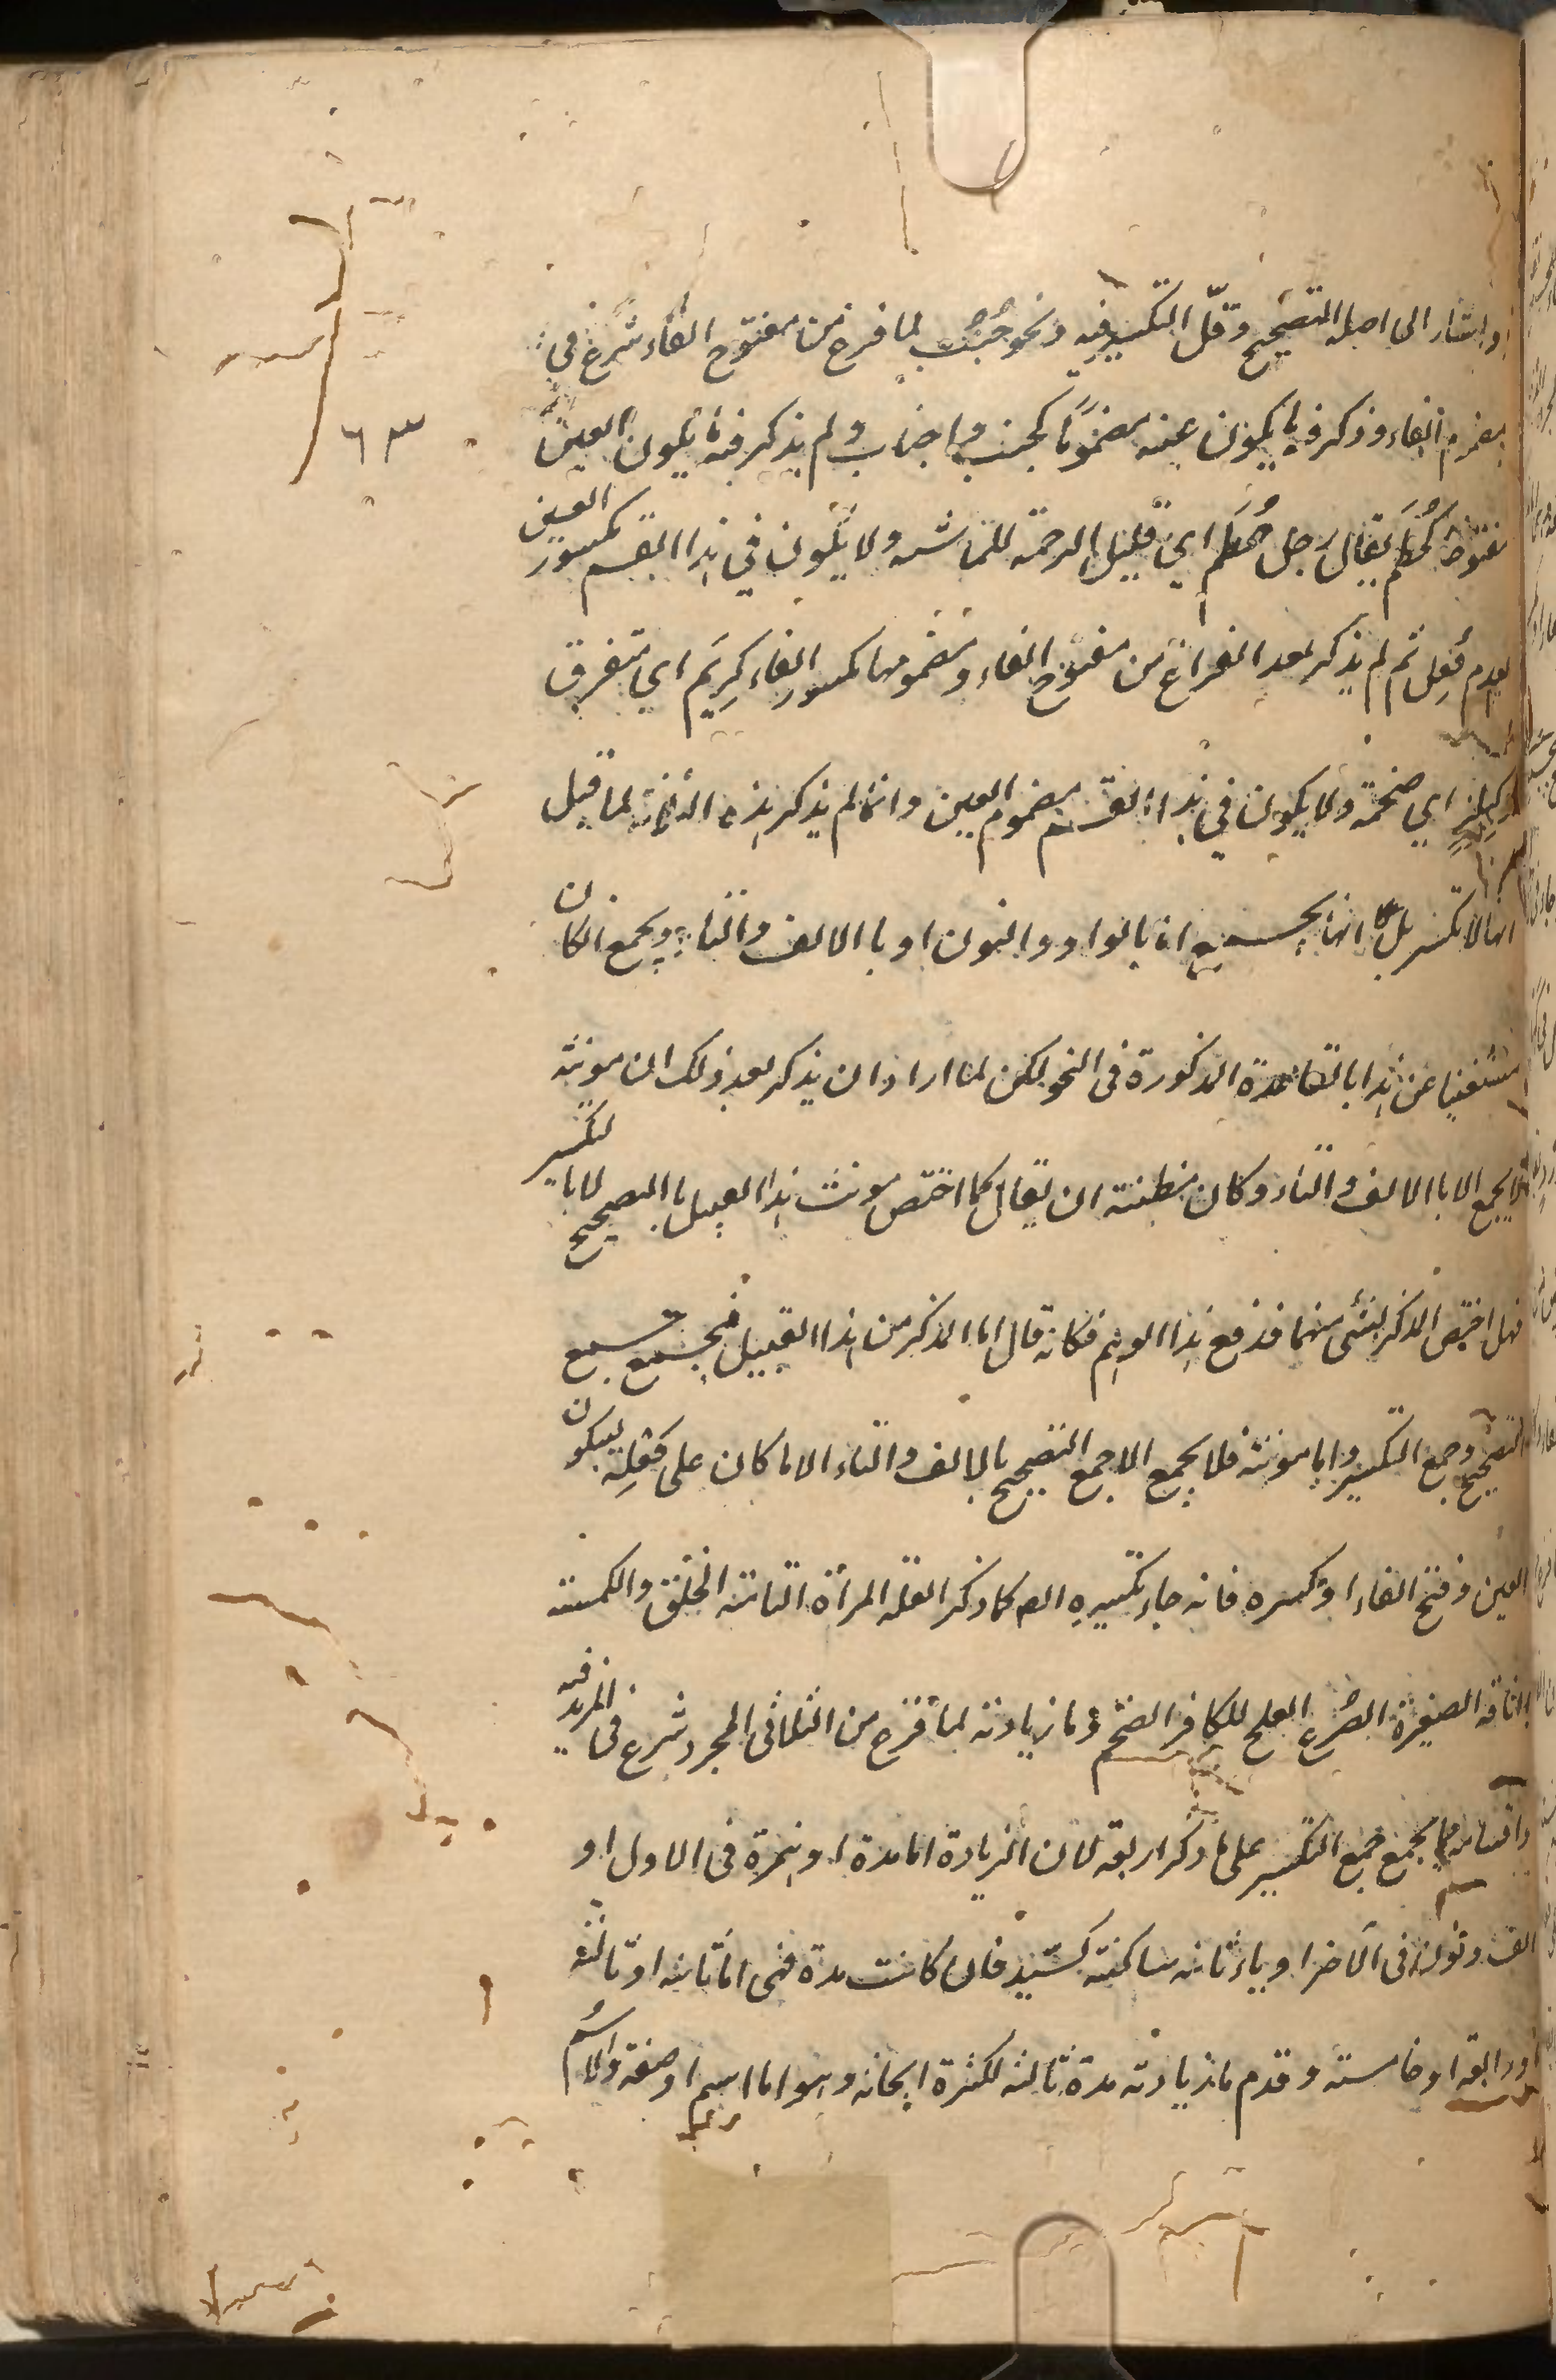 واشار الى اصله التصحيح وقلّ التكسير فيه ونحو جُنُب لما فرغ من مفتوح الفاء شرع في
مضموم الفاء وذكر فيه ما يكون عينه مضموما كجنب واجناب ولم يذكر فيه ما يكون العين
مفتوحة كحُطَم يقال رجل حُطَم اي قليل الرحمة للماشية ولا يكون في هذا القسم مكسور العين
لعدم فُعِل ثم لم يذكر بعد الفراغ من مفتوح الفاء ومضمومها مكسور الفاء كزِيَم اي متفرق
وكبِلِز اي ضخمة ولا يكون في هذا القسم مضموم العين وانما لم يذكر هذه الامثلة لما قيل
انها لا تكسر بل انها يجمع اما بالواو والنون او بالالف والتاء ويجمع الكان
مستغنيا عن هذا بالقاعدة المذكورة في النحو لكن لما اراد ان يذكر بعد ذلك ان مونثه
لا يجمع الا بالالف والتاء وكان مظنة ان يقال كما اختص مونث هذا القبيل بالتصحيح لا بالتكسير
فهل اختص المذكر بشئ منهما فدفع هذا الوهم فكانه قال اما المذكر من هذا القبيل فيجمع جمع
التصحيح وجمع التكسير واما مونثه فلا يجمع الا جمع التصحيح بالالف والتاء الا ما كان على فَعْلة بسكون
العين وفتح الفاء او كسره فانه جاء تكسيره كما ذكر العبلة المرأة التامة الخلق والكمشة
الناقة الصغيرة الضرع العلج للكافر الضخم وما زيادته لما فرغ من الثلاثي المجرد شرع في المزيد فيه
واقسامه مما يجمع جمع التكسير على ما ذكر اربعة لان الزيادة اما مدة او همزة في الاول او
الف ونون في الآخر او ياء ثانية ساكنة كسيّد فان كانت مدة فهي اما ثانية او ثالثة
او رابعة او خامسة وقدم ما زيادته مدة ثالثة لكثرة ابحاثه وهو اما اسم او صفة والاسم